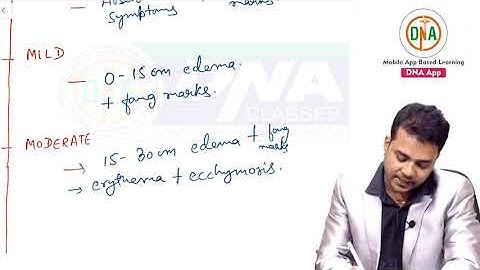 symptoms marks
DNA
Mobile App Based Learning
DNA App
MILD
- 0-15cm edema
+ fang marks.
DNA
CLASSES
MODERATE
→ 15-30cm edema + fang marks
→ erythema + ecchymosis.